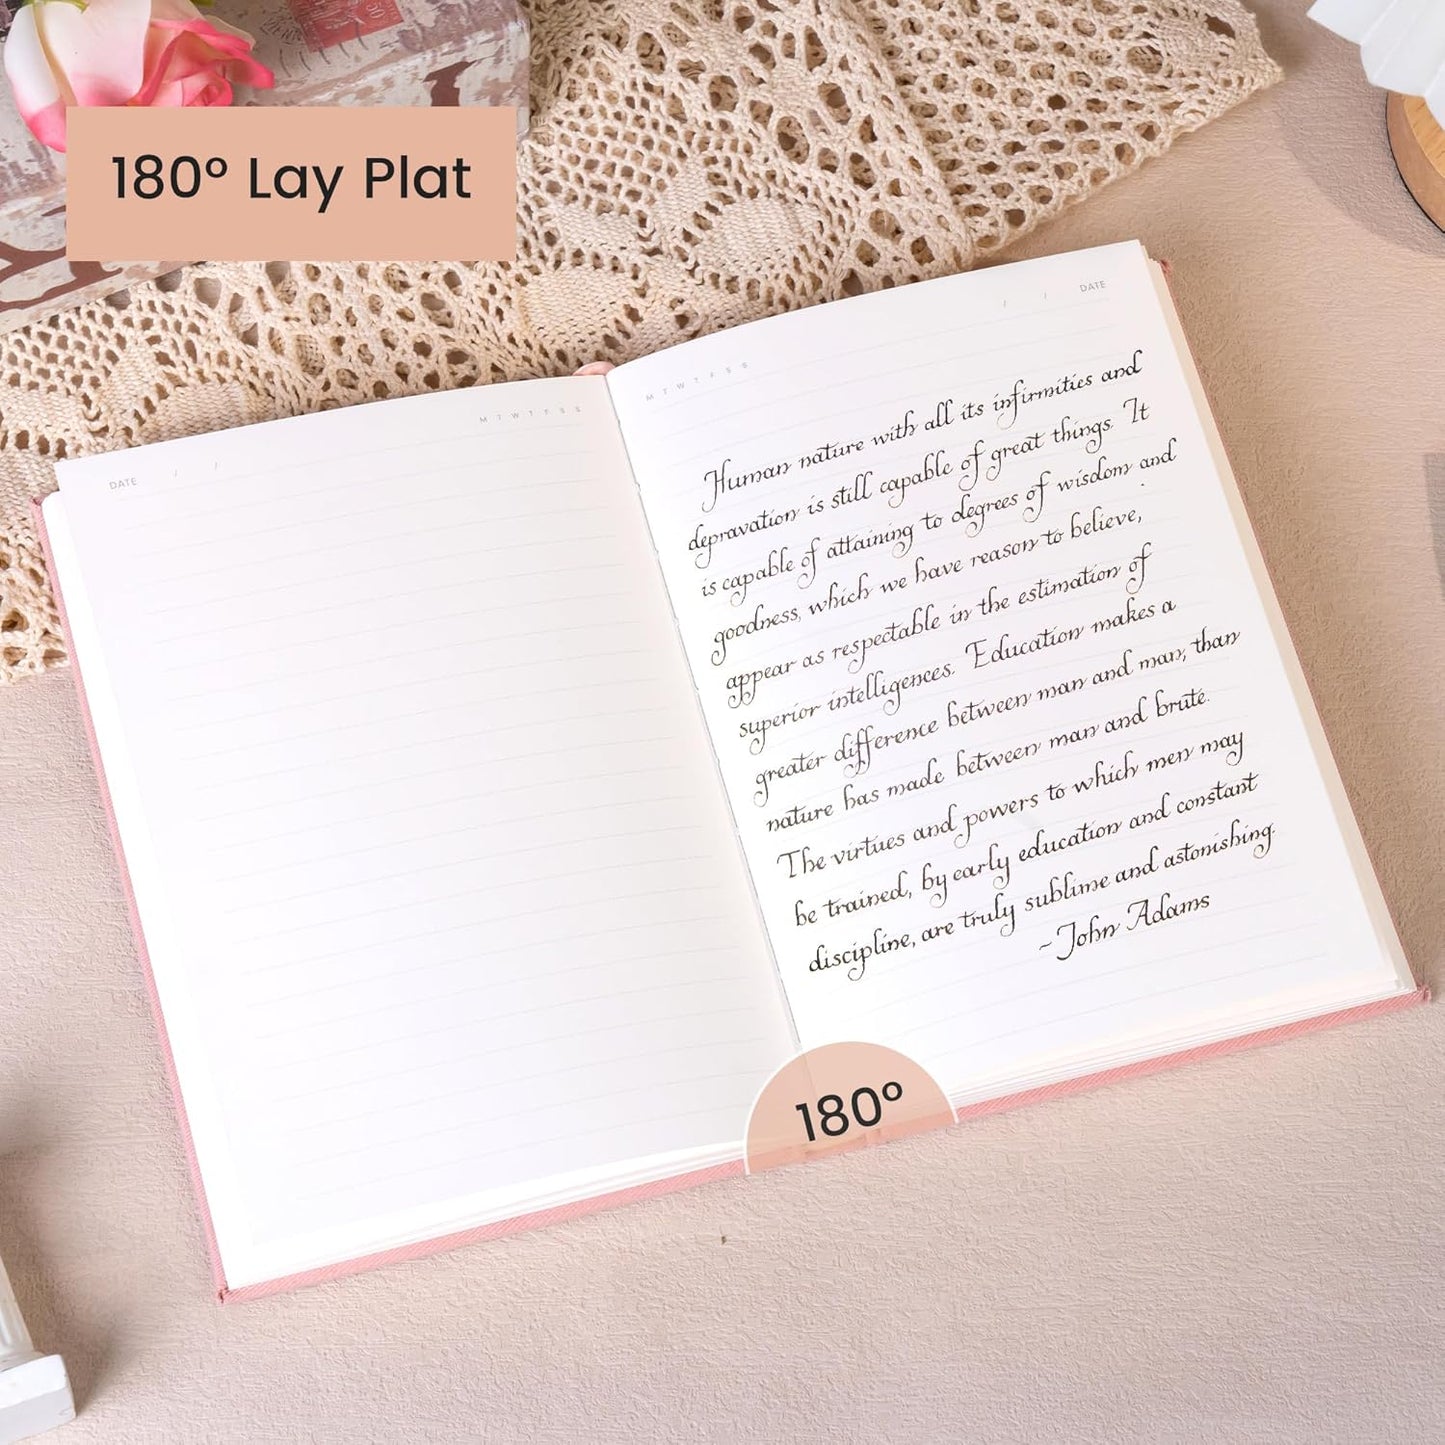 180° Lay Plat
DATE / /
M T W T F S S
M T W T F S S
/ / DATE
Human nature with all its infirmities and
depravation is still capable of great things. It
is capable of attaining to degrees of wisdom and
goodness, which we have reason to believe,
appear as respectable in the estimation of
superior intelligences. Education makes a
greater difference between man and man, than
nature has made between man and brute.
The virtues and powers to which men may
be trained, by early education and constant
discipline, are truly sublime and astonishing.
~John Adams
180°